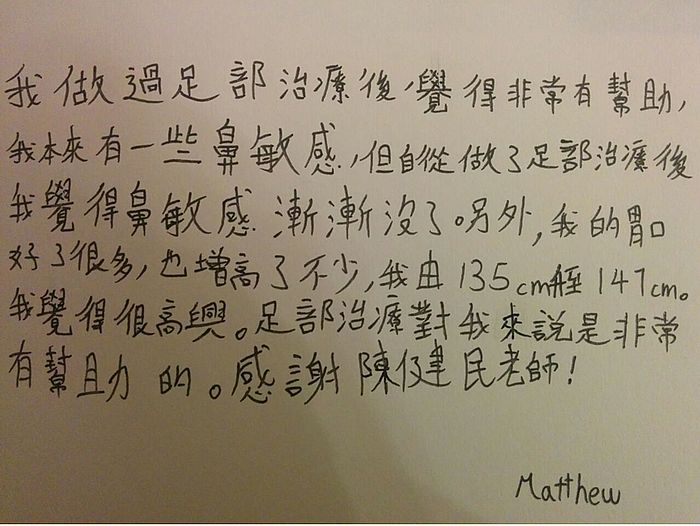 我做過足部治療後，覺得非常有幫助，
我本來有一些鼻敏感，但自從做了足部治療後
我覺得鼻敏感漸漸沒了。另外，我的胃口
好了很多，也增高了不少，我由135cm至147cm。
我覺得很高興。足部治療對我來說是非常
有幫助的。感謝陳健民老師！
Matthew